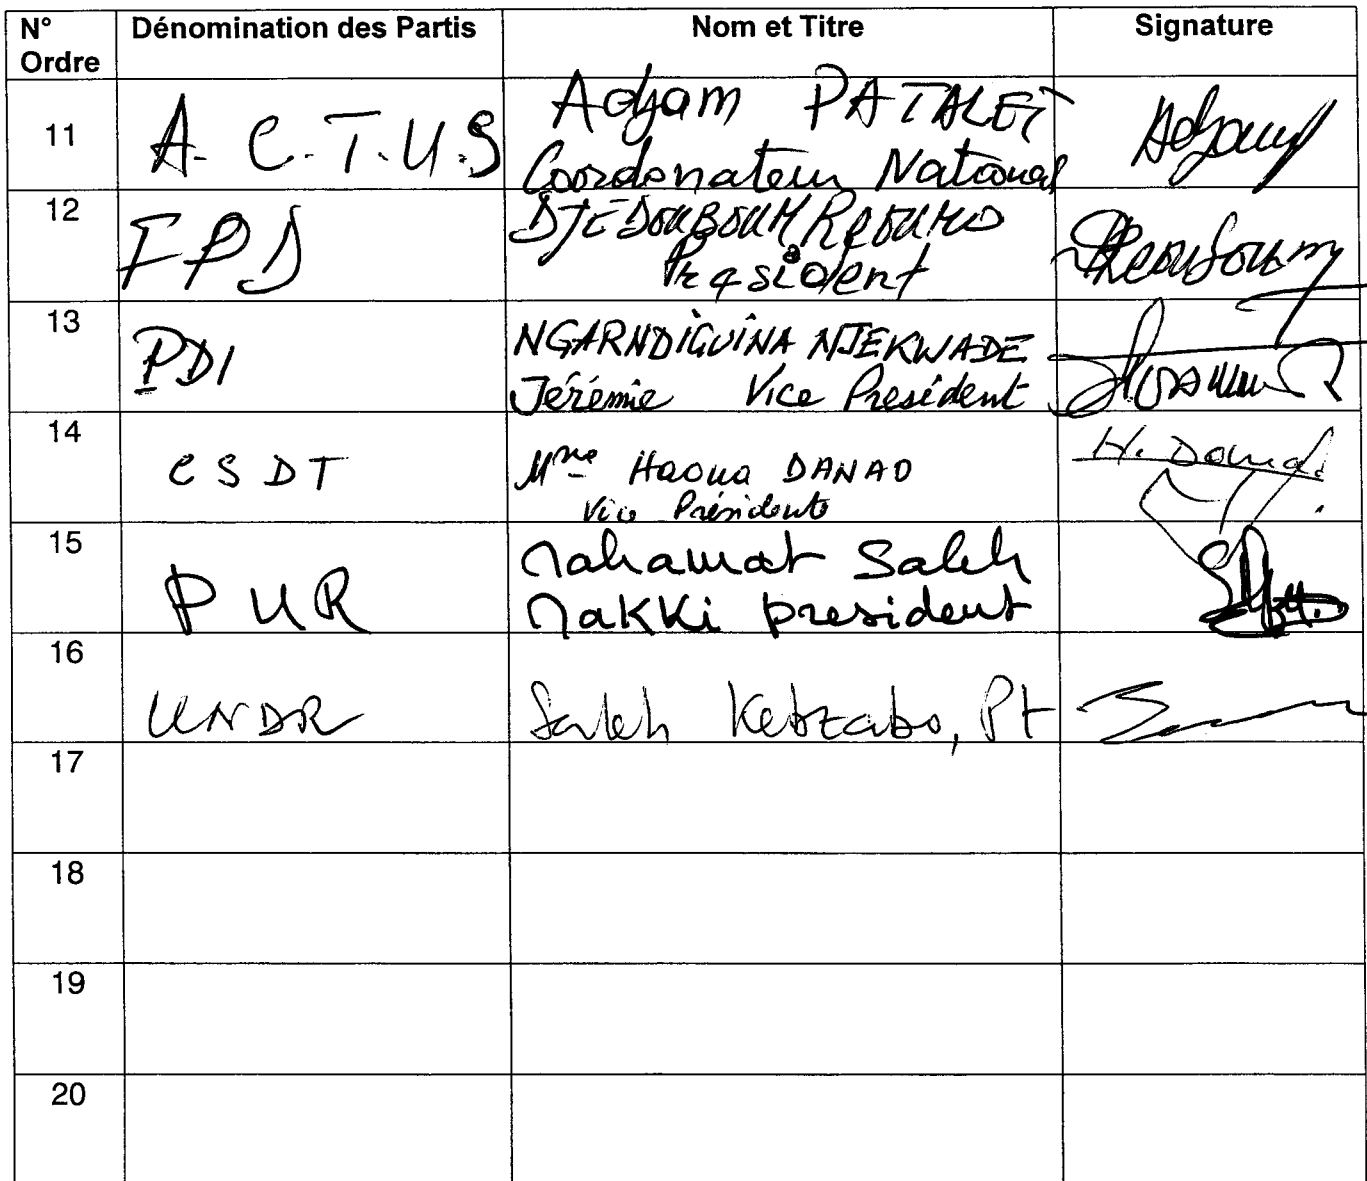 N° Ordre Dénomination des Partis Nom et Titre Signature
11 A.C.T.U.S Adjam PATALET
Coordonateur National
12 FPD DJEDOUBOUM Président
13 PDI NGARNDIGUINA NJEKWADE
Jérémie Vice Président
14 CSDT Mme Haoua DANAD H. Danad
Vice Présidente
15 PUR Mahamat Saleh
Makki president
16 UNDR Saleh Kebzabo, Pt
17
18
19
20